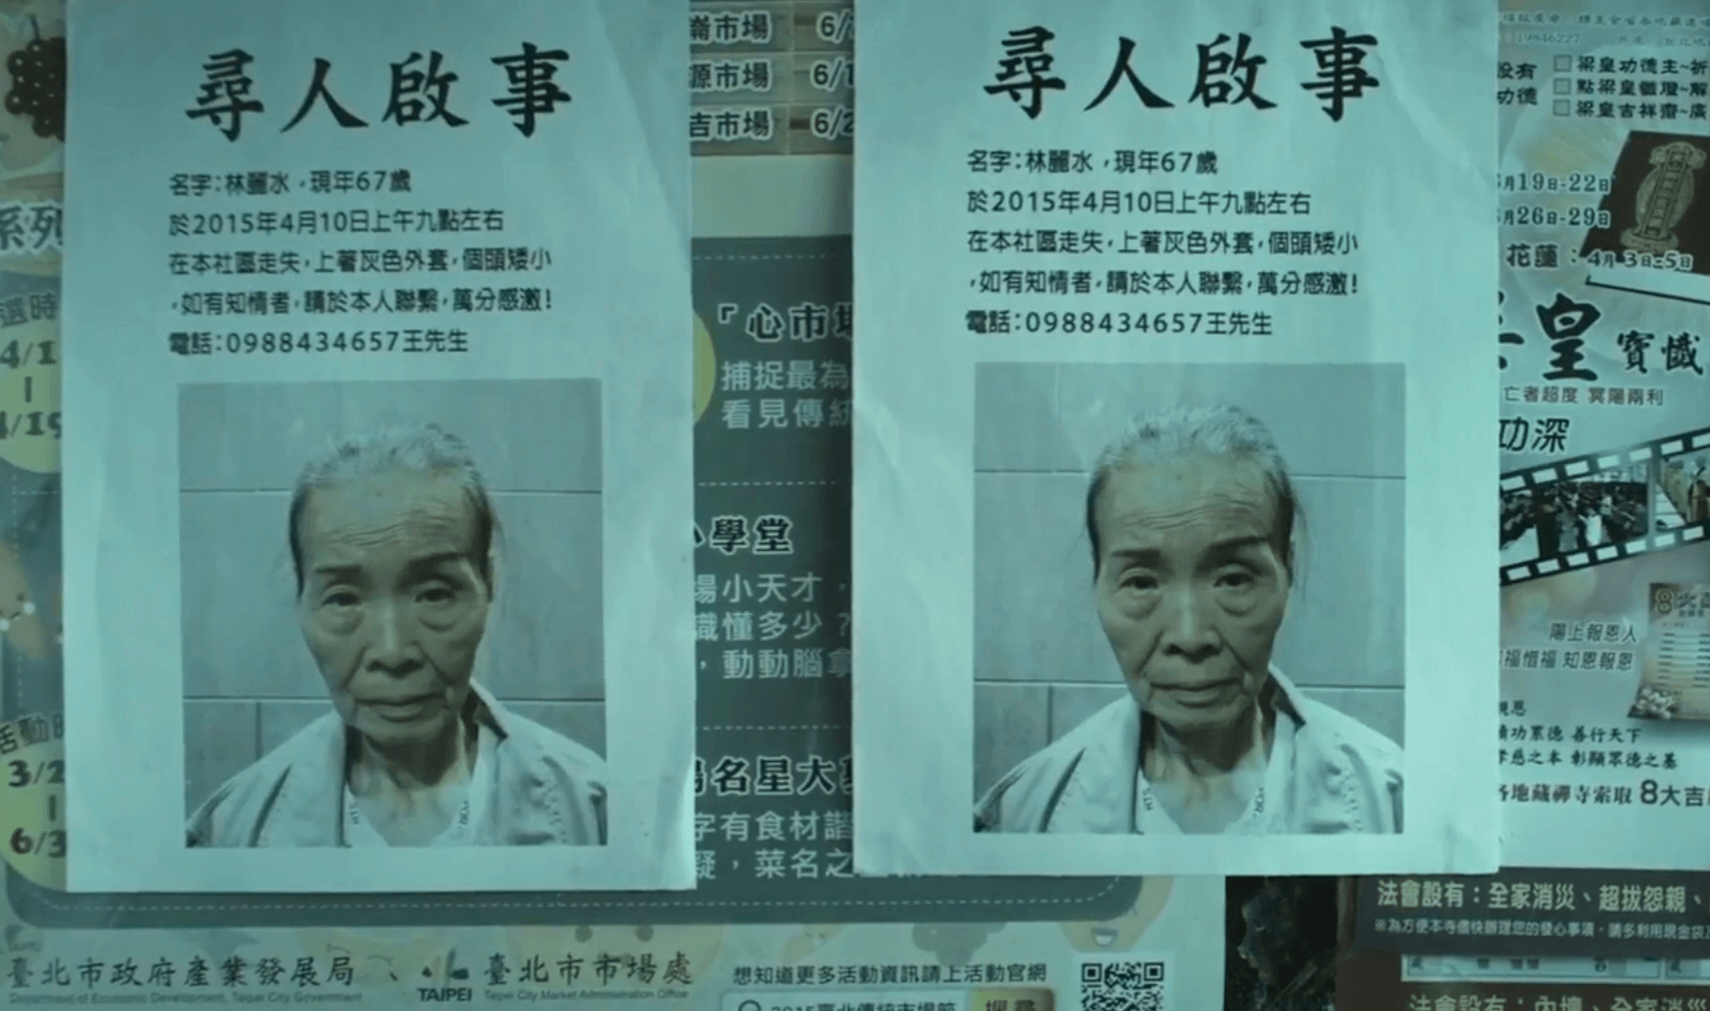 尋人啟事
名字：林麗水，現年67歲
於2015年4月10日上午九點左右
在本社區走失，上著灰色外套，個頭矮小
，如有知情者，請於本人聯繫，萬分感激！
電話：0988434657王先生
尋人啟事
名字：林麗水，現年67歲
於2015年4月10日上午九點左右
在本社區走失，上著灰色外套，個頭矮小
，如有知情者，請於本人聯繫，萬分感激！
電話：0988434657王先生
系列
選時
4/1
4/19
活動時
3/2
6/3
市場 6/
源市場 6/1
吉市場 6/2
「心市場
捕捉最為
看見傳統
小學堂
場小天才，
識懂多少？
，動動腦拿
場名星大
字有食材諧
疑，菜名之
臺北市政府產業發展局
Department of Economic Development, Taipei City Government
TAIPEI
臺北市市場處
Taipei City Market Administration Office
想知道更多活動資訊請上活動官網
2015臺北傳統市場節 搜尋
19846227
設有
功德
□梁皇功德主~祈
□點梁皇
□梁皇吉祥齋~廣
月19日-22日
月26日-29日
花蓮：4月3日-5日
皇寶懺
亡者超度 冥陽兩利
功深
陽上報恩人
福惜福 知恩報恩
親恩
積功累德 善行天下
孝慈之本 彰顯眾德之基
各地藏禪寺索取 8大吉
法會設有：全家消災、超拔怨親、
※為方便本寺儘快辦理您的發心事項，請多利用現金袋
法會設有：內壇、全家消災